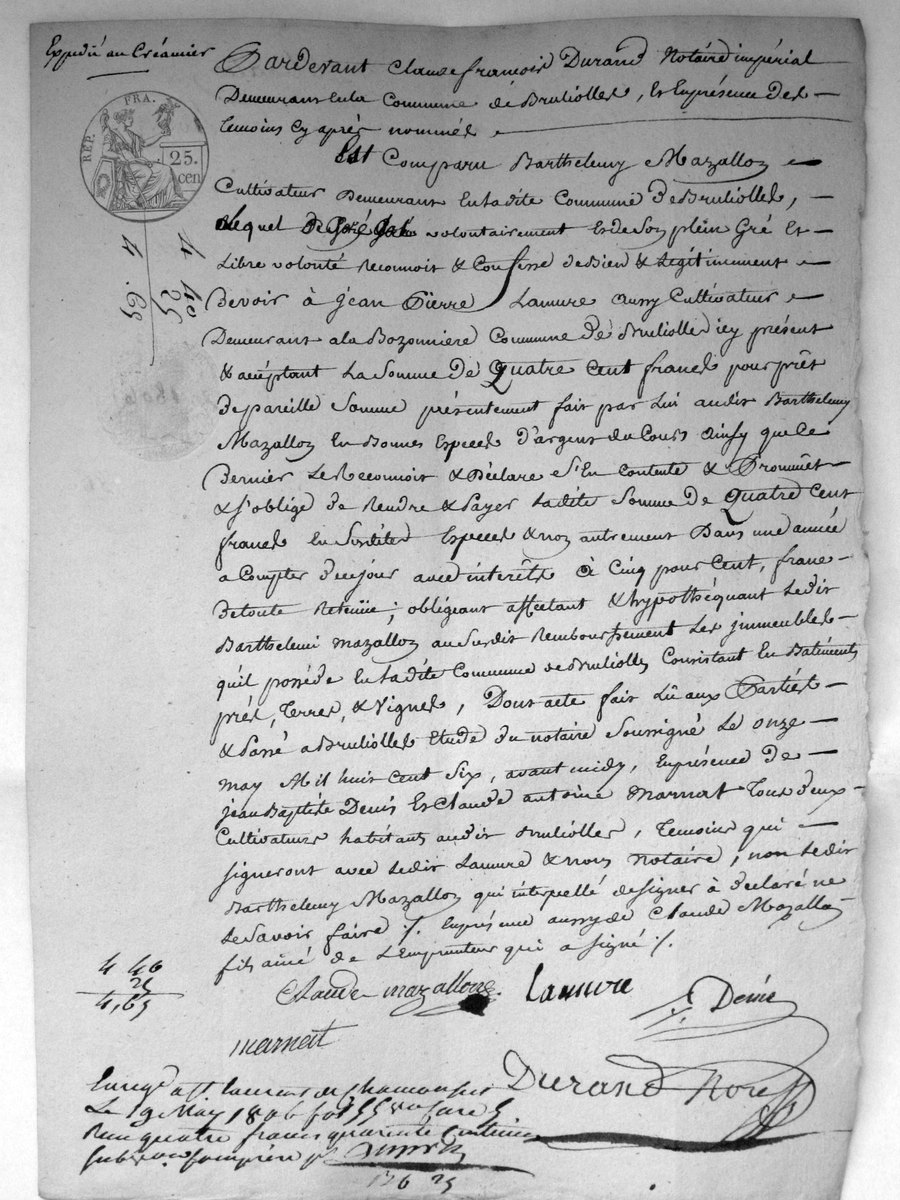 Expédié au Créancier
REP. FRA.
25.
cen
Pardevant Claude françois Durand Notaire impérial
Demeurant en la Commune de Brulioles, Et En présence des
témoins Cy après nommés
Est Comparu Barthelemy Mazallon
Cultivateur Demeurant En ladite Commune De Brulioles,
Lequel volontairement Et de Son plein Gré Et
Libre volonté Reconnoit & Confesse de bien & Légitimement
Devoir à Jean Pierre Lamure aussy Cultivateur
Demeurant a la Bozonniere Commune De Brulioles icy présent
& acceptant La Somme De Quatre Cent francs pour prêt
De pareille Somme présentement fait par Lui audit Barthelemy
Mazallon En Bonnes Especes D'argent du Cours Ainsy que le
Dernier Le Reconnoit & Déclare S'En Contente & Promet
& S'oblige De Rendre & Payer Ladite Somme De Quatre Cent
francs En Susdites Especes & non autrement Dans une année
a Compter De ce jour avec intérêts à Cinq pour Cent, franc
De toute Retenüe; obligeant affectant & hypothéquant Ledit
Barthelemi Mazallon au Susdit Remboursement Les immeubles
qu'il possède En Ladite Commune de Brulioles Consistant En Batiments
prés, Terres, & Vignes, Dont acte fait Lû aux Parties
& Passé a Brulioles Etude du notaire Soussigné Le onze
may Mil huit cent Six, avant midy, En présence De
Jean Baptiste Denis Et Claude antoine Marnat Tous deux
Cultivateurs habitants audit Brulioles, Témoins qui
signeront avec Ledit Lamure & Nous Notaire, non Ledit
Barthelemy Mazallon qui interpellé de signer à déclaré ne
Le Savoir faire /. En présence aussy de Claude Mazallon
fils ainé de L'Emprunteur qui a signé /.
4 40
25
4,65
4 40
25
4.65
Claude mazallon
Lamure
Denis
marnat
Durand Nore
Enregé a St Laurent de Chamousset
Le 19 May 1806 fo 55
Reçu quatre francs quarante centimes